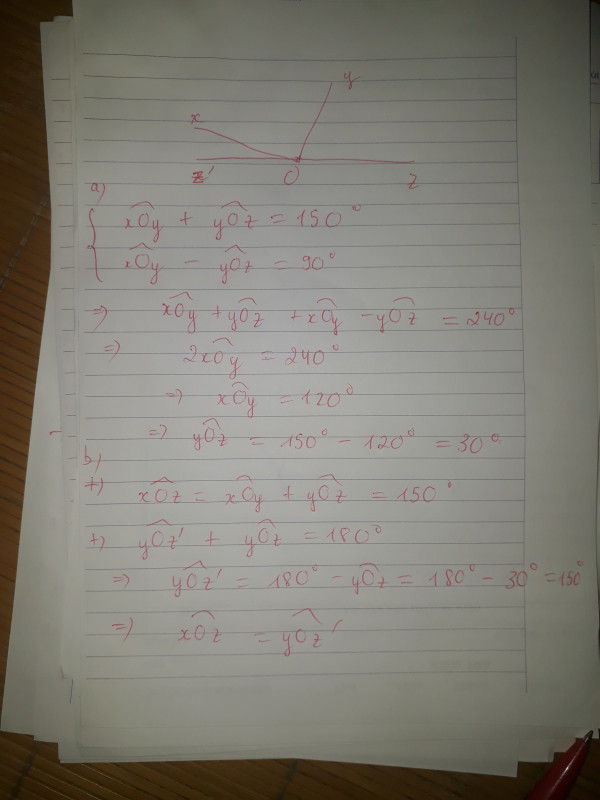 y
x
z' O z
a)
{ xOy + yOz = 150°
xOy - yOz = 90°
=> xOy + yOz + xOy - yOz = 240°
=> 2xOy = 240°
=> xOy = 120°
=> yOz = 150° - 120° = 30°
b)
+) xOz = xOy + yOz = 150°
+) yOz' + yOz = 180°
=> yOz' = 180° - yOz = 180° - 30° = 150°
=> xOz = yOz'